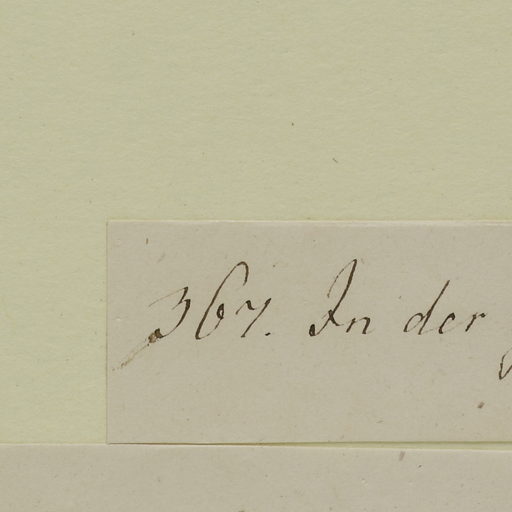 367. In der